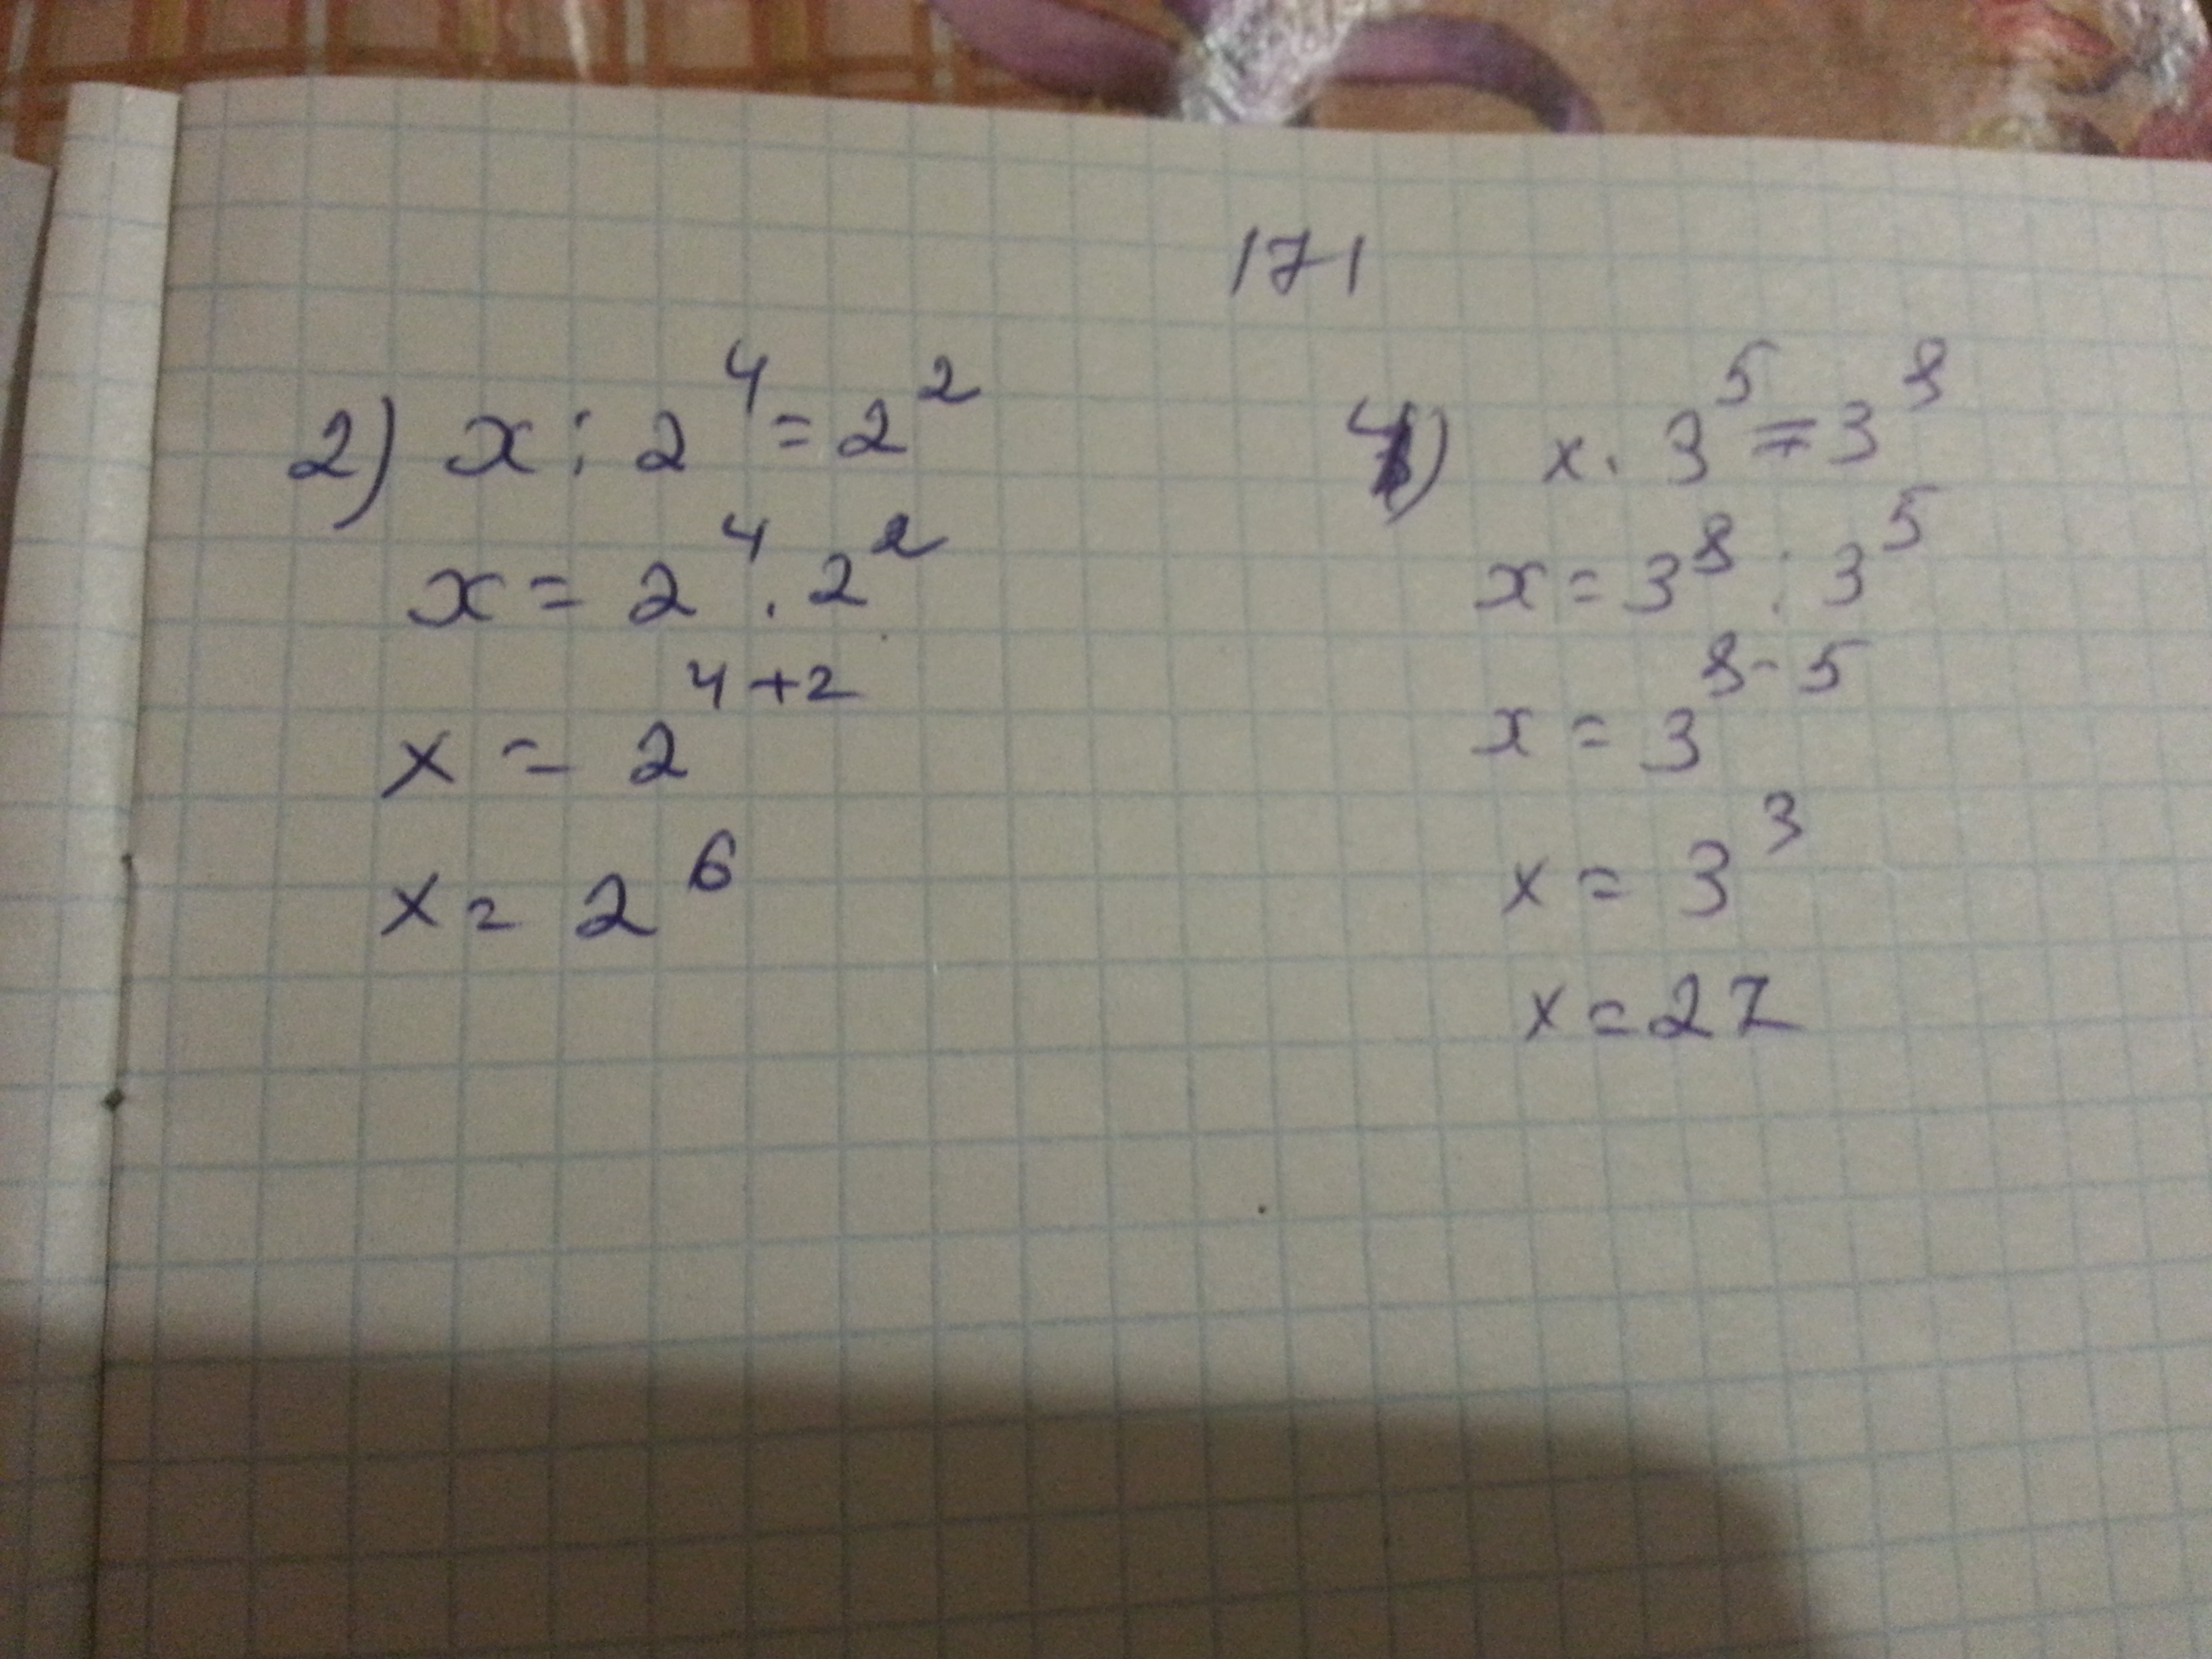 171
2) x : 2⁴ = 2²
x = 2⁴ · 2²
x = 2⁴⁺²
x = 2⁶
4) x · 3⁵ = 3⁸
x = 3⁸ : 3⁵
x = 3⁸⁻⁵
x = 3³
x = 27